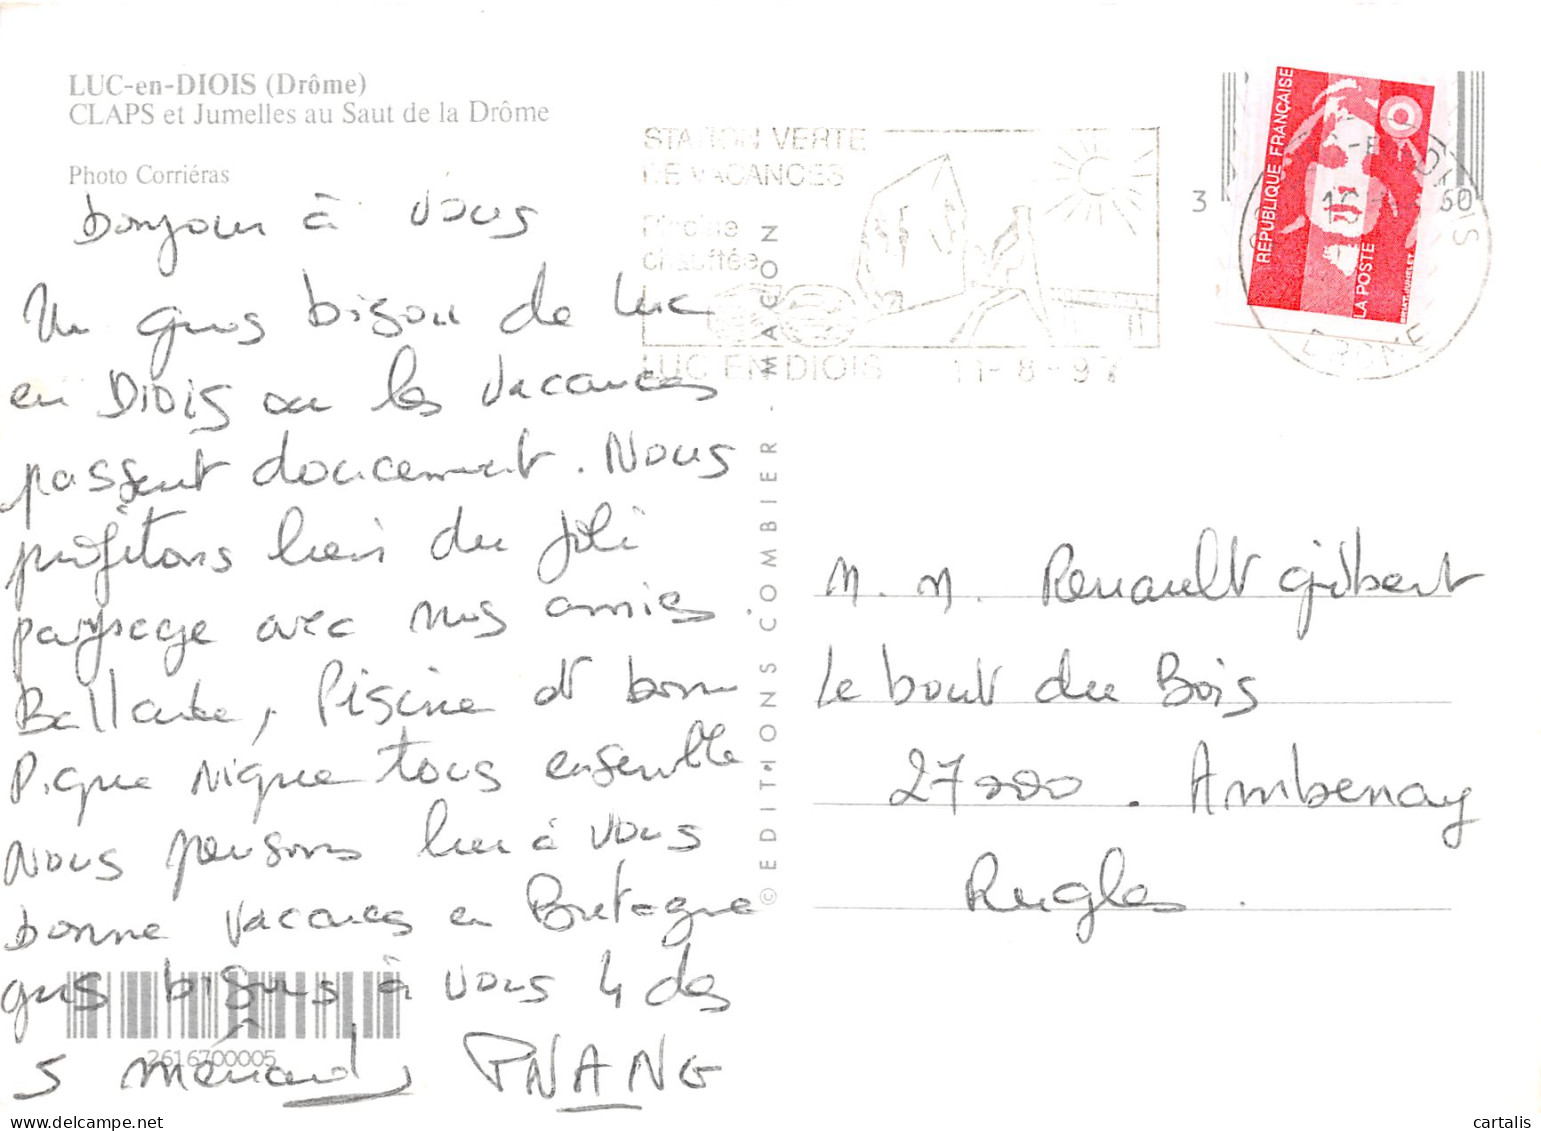 LUC-en-DIOIS (Drôme)
CLAPS et Jumelles au Saut de la Drôme
Photo Corriéras
bonjour à vous
Un gros bisou de Luc
en DIOIS ou les vacances
passent doucement. Nous
profitons bien du joli
paysage avec nos amies.
Ballade, Piscine et bon
Pique nique tous ensemble
Nous pensons bien à vous
bonne vacances en Bretagne
gros bisous à vous 4 des
5 ménard,
2616700005
© EDITIONS COMBIER - MACON
STATION VERTE
DE VACANCES
Piscine
chauffée
LUC EN DIOIS 11-8-97
3
60
RÉPUBLIQUE FRANÇAISE
LA POSTE
DROME
M. M. Renault gilbert
Le bout du Bois
27000. Ambenay
Rugles.